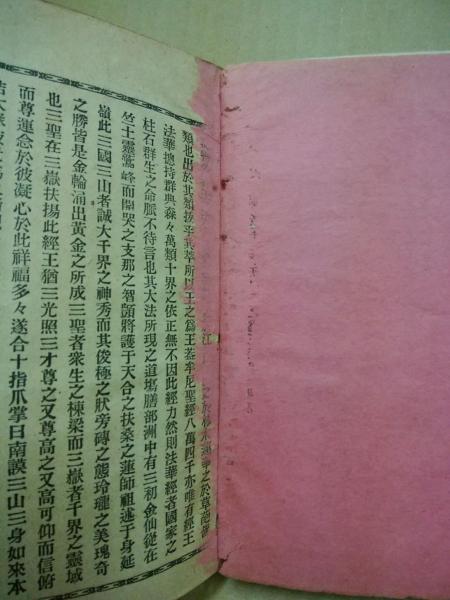 類也出於其類拔乎其萃所以王之爲王蓋牟尼聖經八萬四千亦唯有經王
法華總持群典森々萬類十界之依正無不因此經力然則法華經者國家之
柱石群生之命脈不待言也其大法所現之道塲膳部洲中有三初金仙從在
竺土靈鷲峰而開哭之支那之智顗將護于天合之扶桑之蓮師祖述于身延
嶺此三國三山者誠大千界之神秀而其俊極之狀旁礡之態玲瓏之美瑰奇
之勝皆是金輪涌出黃金之所成三聖者衆生之棟梁而三嶽者千界之靈域
也三聖在三嶽扶揚此經王猶三光照三才尊之又尊高之又高可仰而信俯
而尊運念於彼凝心於此祥福多々遂合十指爪掌日南謨三山三身如來本